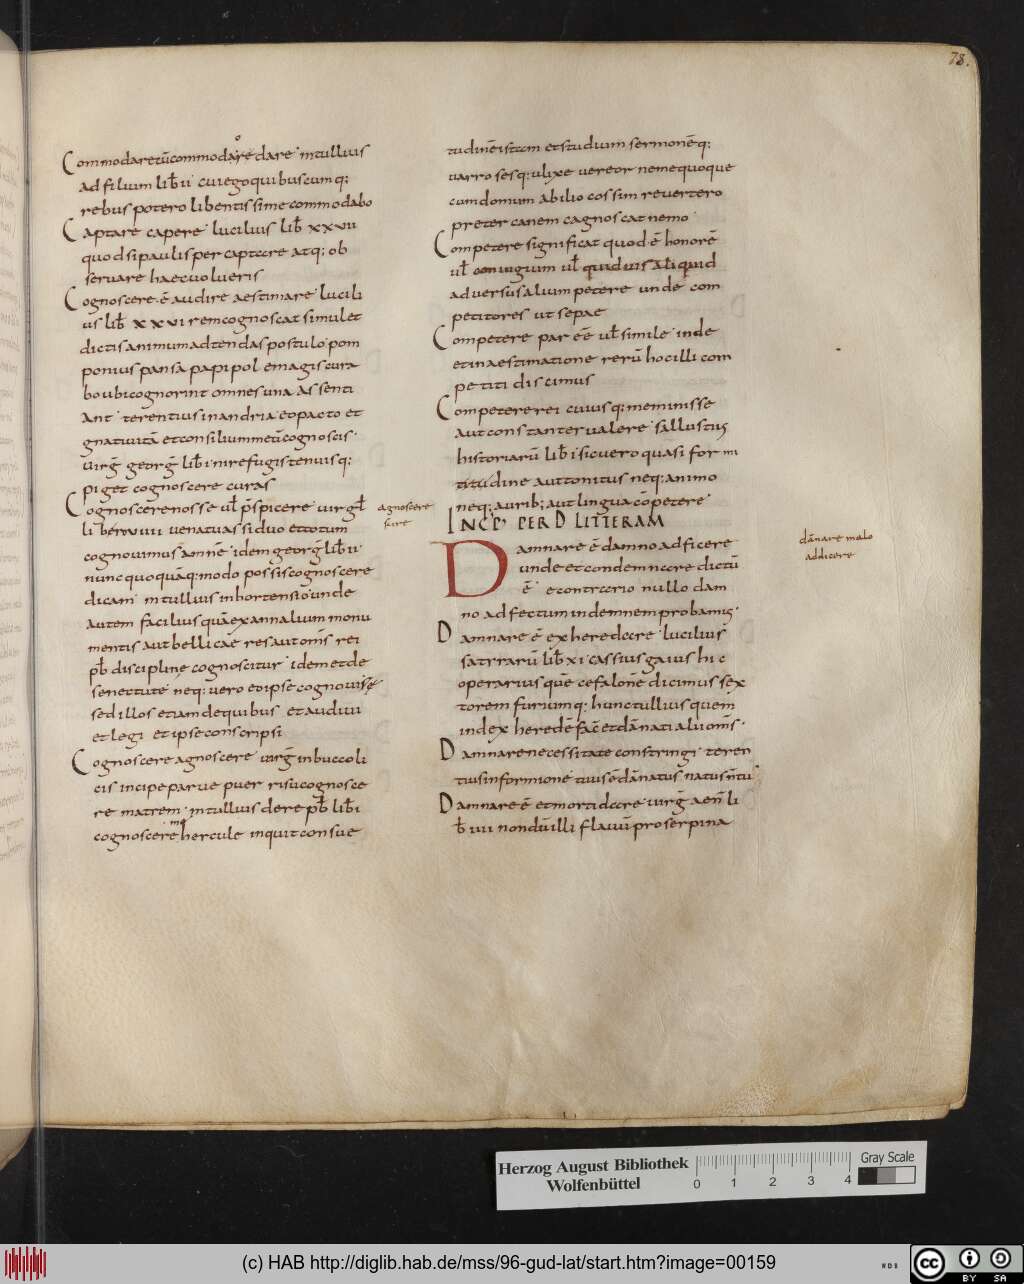 78.
Commodaretūcommodare dare· mtullius
ad filium lib̄ ii cuiegoquibuscumq;
rebuspotero libentissime commodabo
Captare capere· lucilius lib̄ xxvii
quodsipaulisper captare atq; ob
seruare haecuolueris
Cognoscere·ē audire aestimare· lucili
us lib̄ xxvi remcognoscat simulet
dictisanimumadtendaspostulo· pom
ponius pansa papipol emagiscura
boubicognorint omnes una assenti
ant· terentius inandria· eopacto et
gnatiuitā etconsiliummeūcognoscis·
uirḡ georḡ lib̄ i· nirefugistenuisq;
piget cognoscere curas
Cognoscerenosse ul̄ p̄spicere· uirgl̄
agnoscere
scire
cognouimus amnē· idem georḡ lib̄ ii·
nunc quoquāq; modo possiscognoscere
dicam· mtullius inhortensio· unde
autem facilius quāexannalium monu
mentis autbellicae res aut om̄s rei
pb̄ discipline cognoscitur· idem et de
senectute· neq; uero eoipse cognouisse
sed illos etiamdequibus et audiui
et legi et ipse conscripsi
Cognoscere agnoscere· uirḡ inbuccoli
cis incipe parue puer risu cognosce
re matrem· mtullius dere pb̄ lib̄ i
cognoscere mq hercule inquit consue
tudinē istam etstudium sermonēq;
uarro sesq; ulixe uereor nemequoque
cum domum abilio cossim reuertero
preter canem cagnoscat nemo·
Competere significat quod ē honorē
ul̄ coniugium ul̄ quiduis aliquid
aduersus alium petere unde com
petitores ut sepae
Competere par eē ul̄ simile· inde
etinaestimatione rerū hocilli com
petiti dicimus
Competererei cuiusq; meminisse
autconstanter ualere· sallustius
historiarū lib̄ i sicuero quasi for mi
dine auttonitus neq; animo
neq; aurib; aut lingua cōpetere·
INCP̄ PER D LITTERAM
Damnare ē damno adficere
unde et condemnare dictū
ē· econtrario nullo dam
no adfectum indemnem probamus·
dānare malo
addicere
Damnare ē exheredare· lucilius
satyrarū lib̄ xi cassius gaius hic
operarius quē cefalonē dicimus sex
torem furiumq; hunc tullius quem
index heredē fac̄ et dānati alii om̄s·
Damnarenecessitate constringi· teren
tius informione· tuis ē dānatus natus n̄ tu·
Damnare ē et morti dare· uirḡ aen̄ li
b̄ iiii nondū illi flauū proserpina
Herzog August Bibliothek
Wolfenbüttel
0 1 2 3 4
Gray Scale
(c) HAB http://diglib.hab.de/mss/96-gud-lat/start.htm?image=00159
WDB
cc BY SA